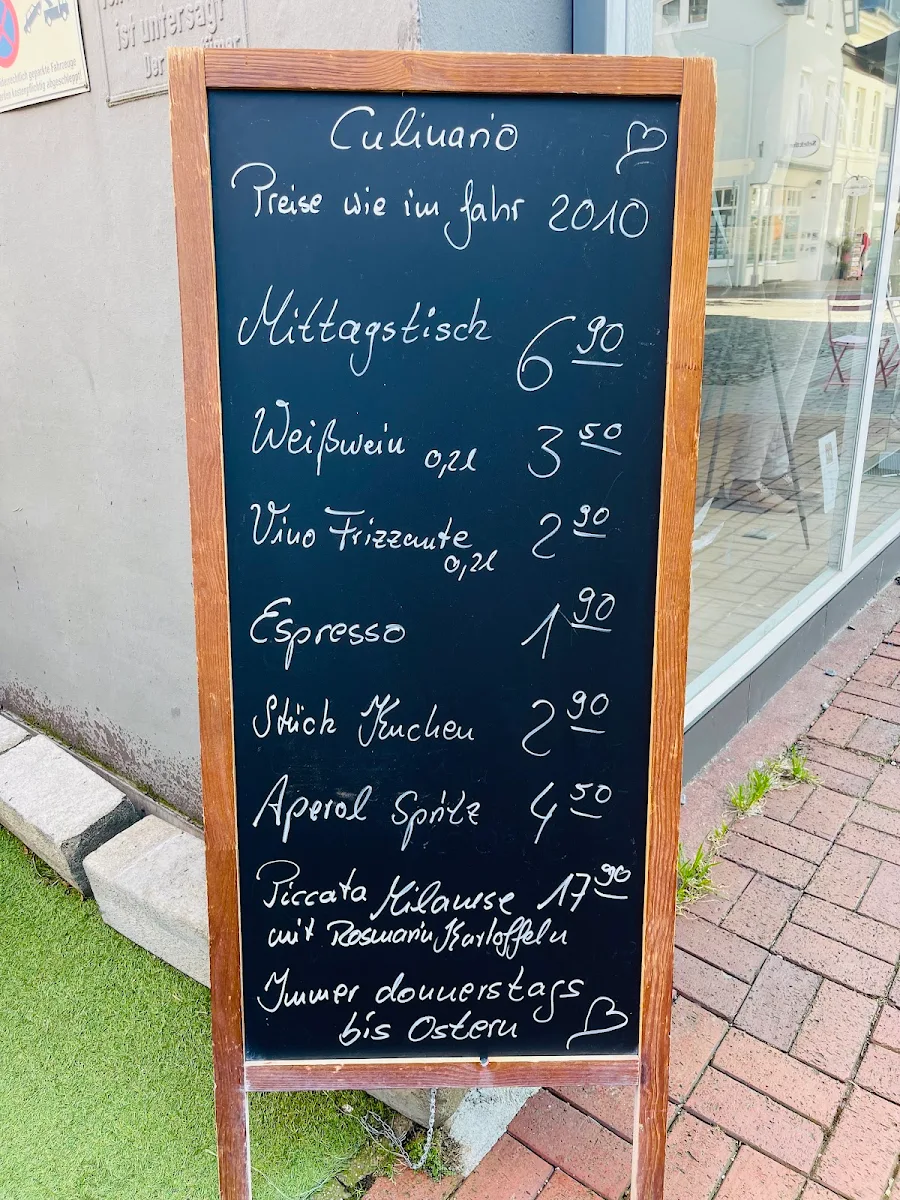 ist untersagt
Der
Culinario
Preise wie im Jahr 2010
Mittagstisch 6 90
Weißwein 0,2l 3 50
Vino Frizzante 0,2l 2 90
Espresso 1 90
Stück Kuchen 2 90
Aperol Spritz 4 50
Piccata Milanese 17 90
mit Rosmarin Kartoffeln
Immer donnerstags
bis Ostern